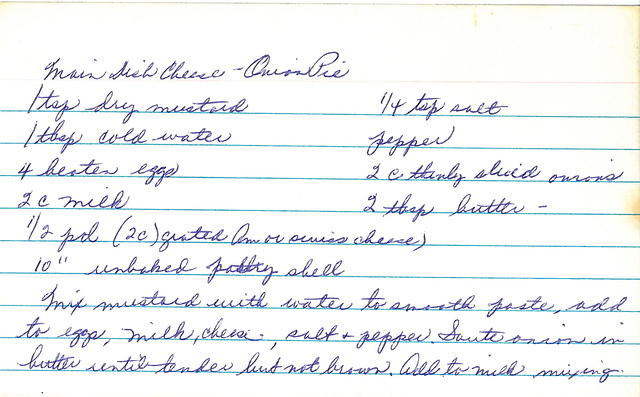 Main Dish Cheese - Onion Pie
1 tsp dry mustard 1/4 tsp salt
1 tbsp cold water pepper
4 beaten eggs 2 c thinly sliced onions
2 c milk 2 tbsp butter -
1/2 pd (2c) grated (Am or swiss cheese)
10" unbaked pastry shell
Mix mustard with water to smooth paste, add
to eggs, milk, cheese, salt + pepper. Saute onion in
butter until tender but not brown. Add to milk mixing.